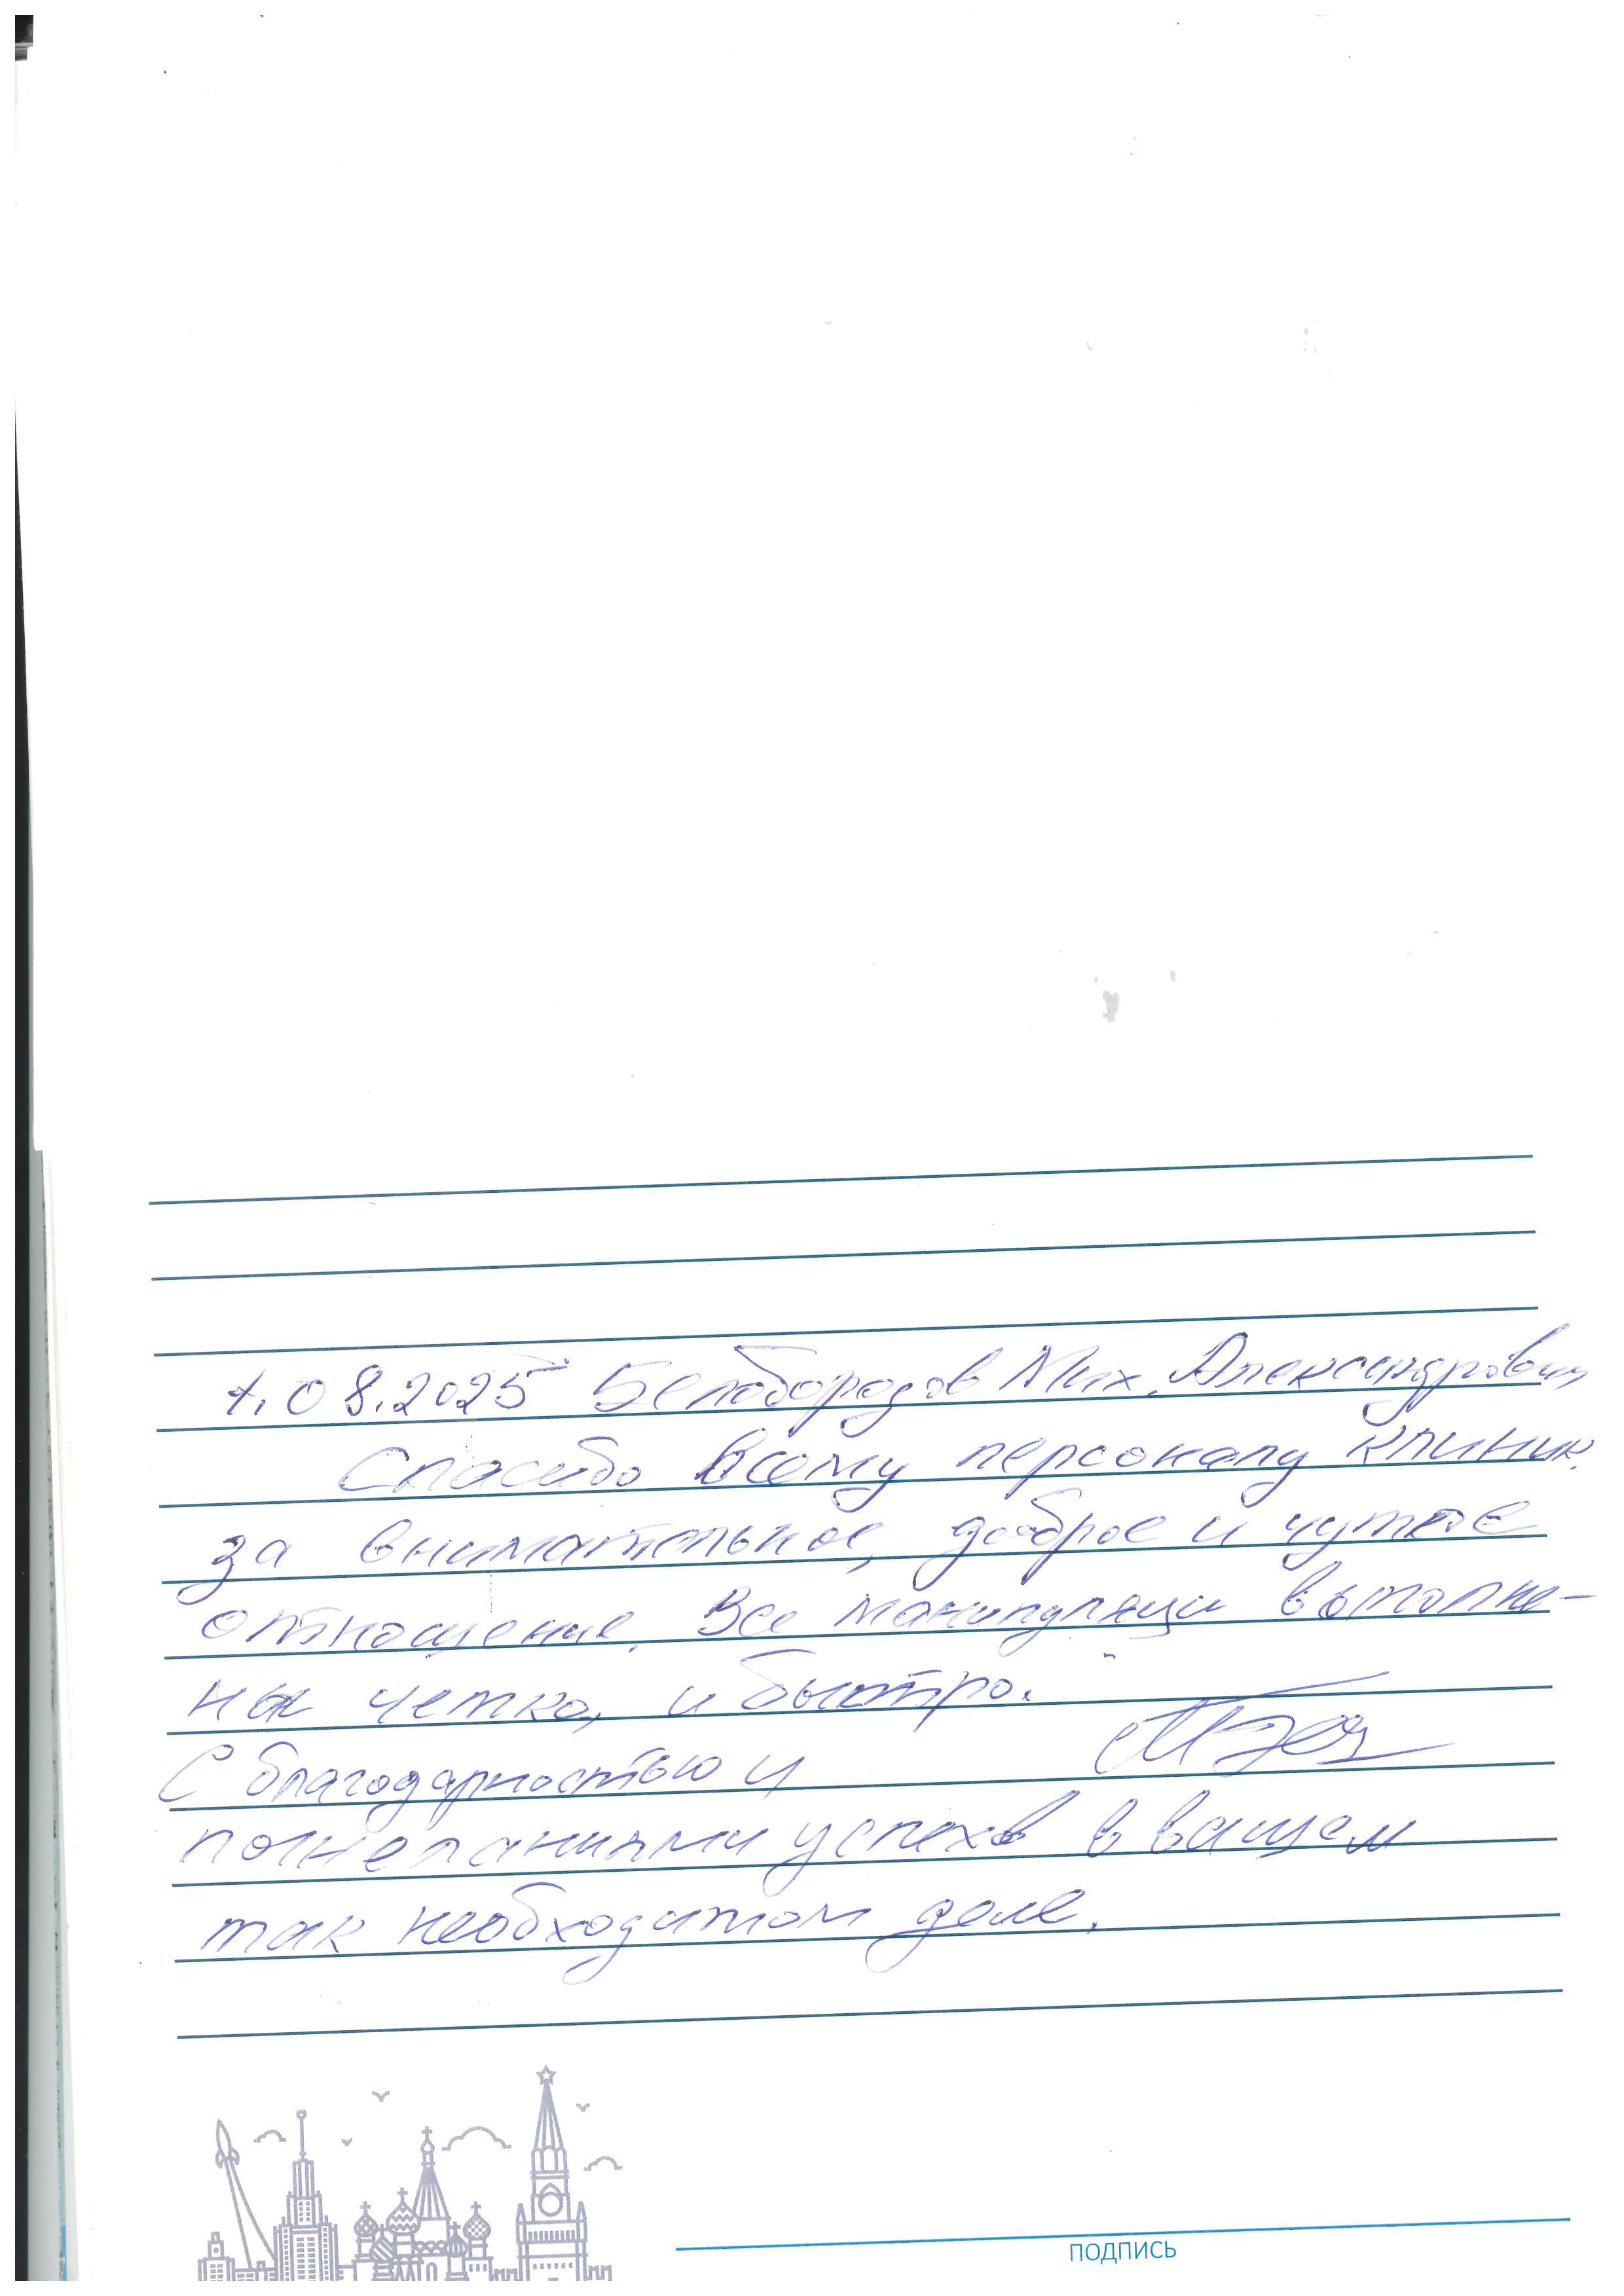 1.08.2025 Белобородов Мих. Александрович
Спасибо всему персоналу клиник.
за внимательное, доброе и чуткое
отношение. Все манипуляции выполне-
ны четко, и быстро.
С благодарностью и
пожеланиями успехов в вашем
так необходимом деле.
ПОДПИСЬ